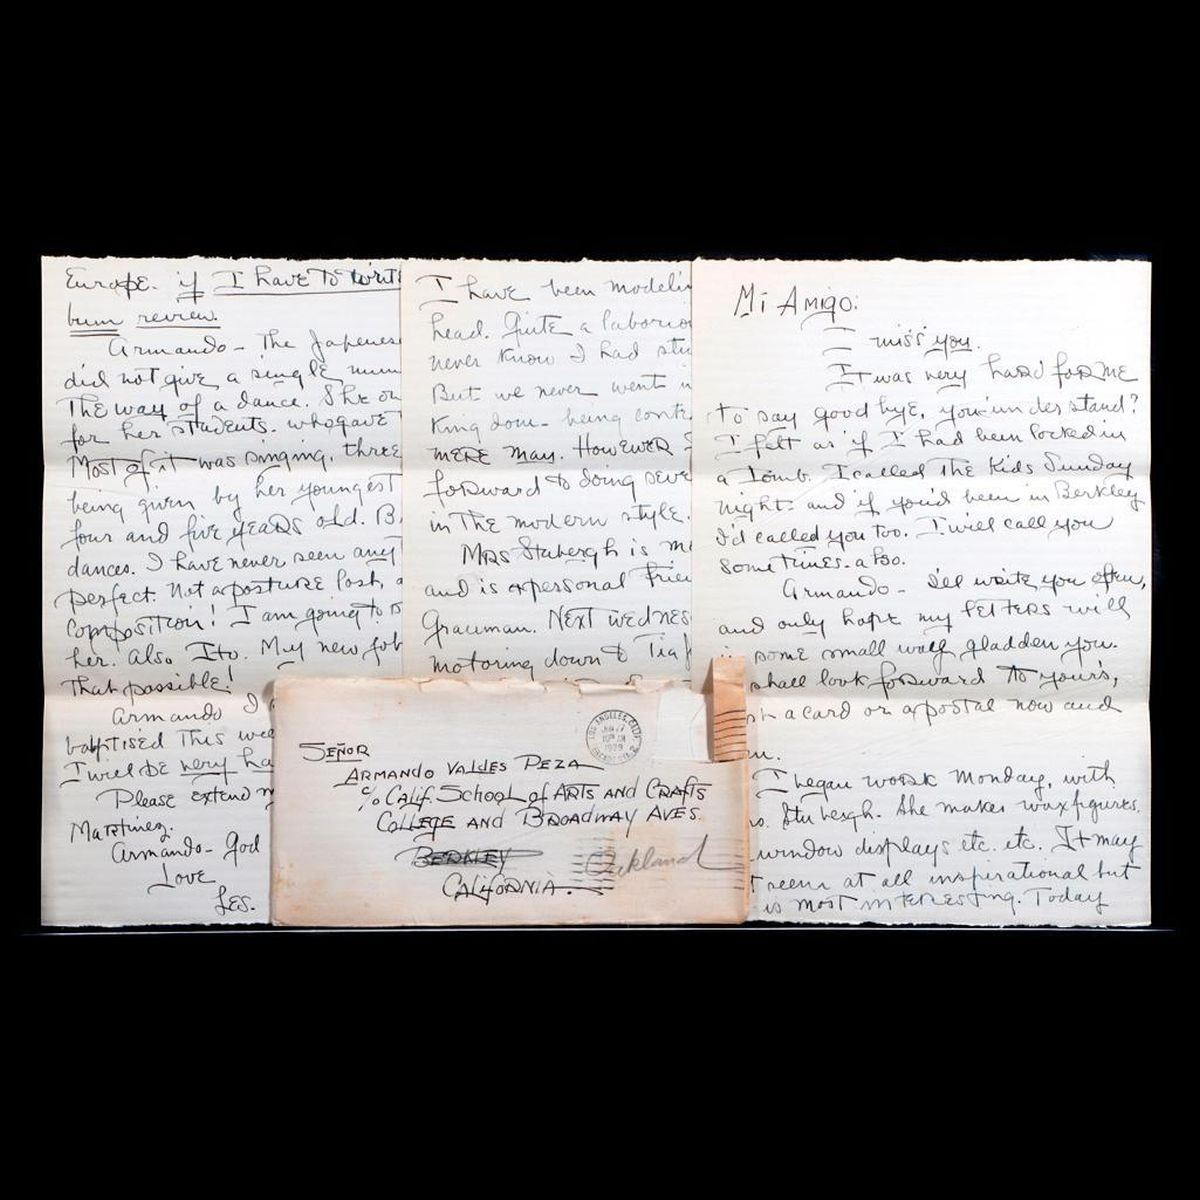 Mi Amigo:
I miss you.
It was very hard for me
to say good bye, you understand?
I felt as if I had been locked in
a Tomb. I called The Kids Sunday
night- and if you'd been in Berkley
I'd called you too. I will call you
sometimes.
Armando- I'll write you often,
and only hope my letters will
some small way gladden you.
shall look forward to yours,
a card or a postal now and
I began work Monday, with
She makes wax figures.
window displays etc. etc. It may
seem at all inspirational but
is most interesting. Today
I have been modelin
head. Quite a laborio
never know I had stu
But we never went in
King dom- being conte
mere man. However
forward to doing seve
in The modern style.
Mrs Stubergh is
and is a personal frie
Grauman. Next wednes
motoring down to Tia
Europe. if I have to write
bum review.
Armando- The Japenese
did not give a single num
The way of a dance. She
for her students. who gave
Most of it was singing, three
being given by her youngest
four and five years old. B
dances. I have never seen any
perfect. Not a posture lost, a
composition! I am going to
her. Also Ito. My new job
That possible!
Armando I
baptised This wee
I will be very ha
Please extend m
Martinez.
Armando- God
Love
Les.
LOS ANGELES, CALIF.
1929
SEÑOR
ARMANDO VALDES PEZA
c/o CALIF. SCHOOL of ARTS AND CRAFTS
COLLEGE AND BROADWAY AVES.
BERKLEY
Oakland
CALIFORNIA.